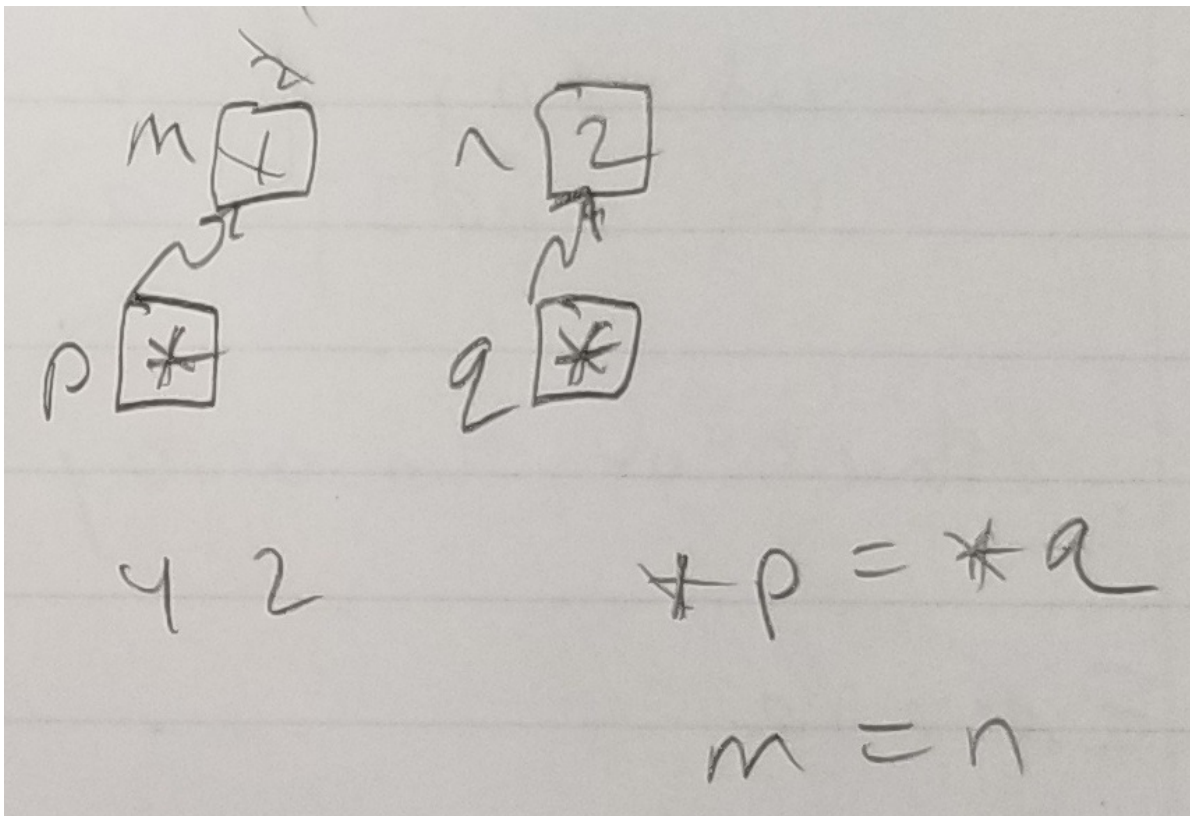 2
m 4 n 2
p * q *
4 2 *p = *q
m = n